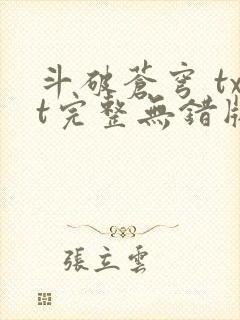 斗破蒼穹 tx
t完整無錯版
張立雲